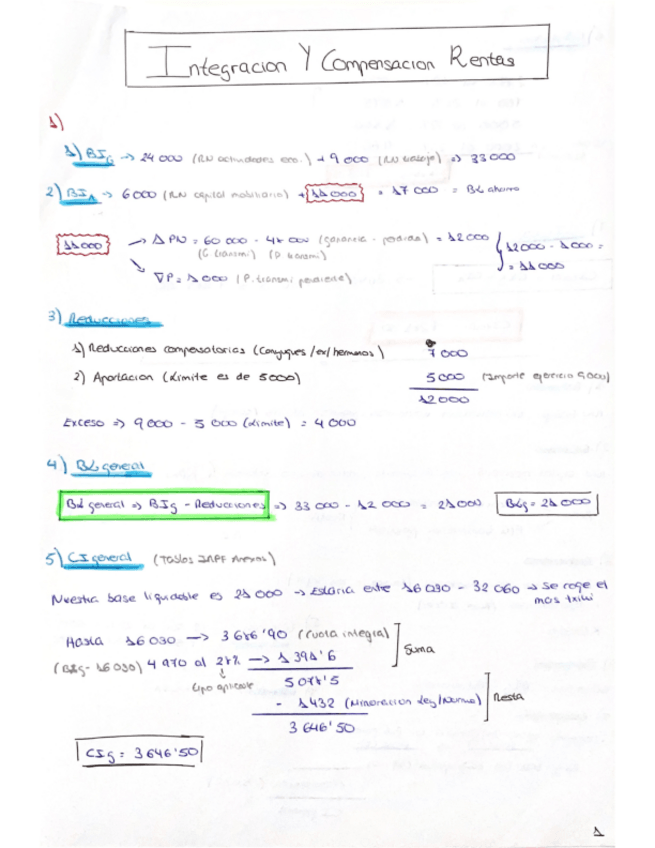 Integracion Y Compensacion Rentas
1)
1) BIG → 24 000 (RN actividades eco.) + 9 000 (RN trabajo) => 33 000
2) BIA → 6 000 (RN capital mobiliario) + 11 000 = 17 000 = BL ahorro
11 000 → Δ PN = 60 000 - 48 000 (ganancia - perdidas) = 12 000
(G. transmi) (P. transmi)
12 000 - 1 000 =
= 11 000
∇P = 1 000 (P. transmi
3) Reducciones
1) Reducciones compensatorias (Conyuges / ex / hermanos) 7 000
2) Aportacion (Limite es de 5000) 5 000 (Importe ejercicio 9 000)
12 000
Exceso => 9 000 - 5 000 (Limite) = 4 000
4) BL general
BL general => BIg - Reducciones => 33 000 - 12 000 = 21 000 BLg = 21 000
5) CI general (Tablas IRPF Anexos)
Nuestra base liquidable es 21 000 → Estaria entre 16 030 - 32 060 → se coge el
mas
Hasta 16 030 → 3 686'90 (Cuota integral)
Suma
(BLg - 16 030) 4 970 al 28% → 1 391'6
tipo aplicable
5 078'5
- 1 432 (Minoracion Ley/Norma)
Resta
3 646'50
CIg = 3 646'50
1